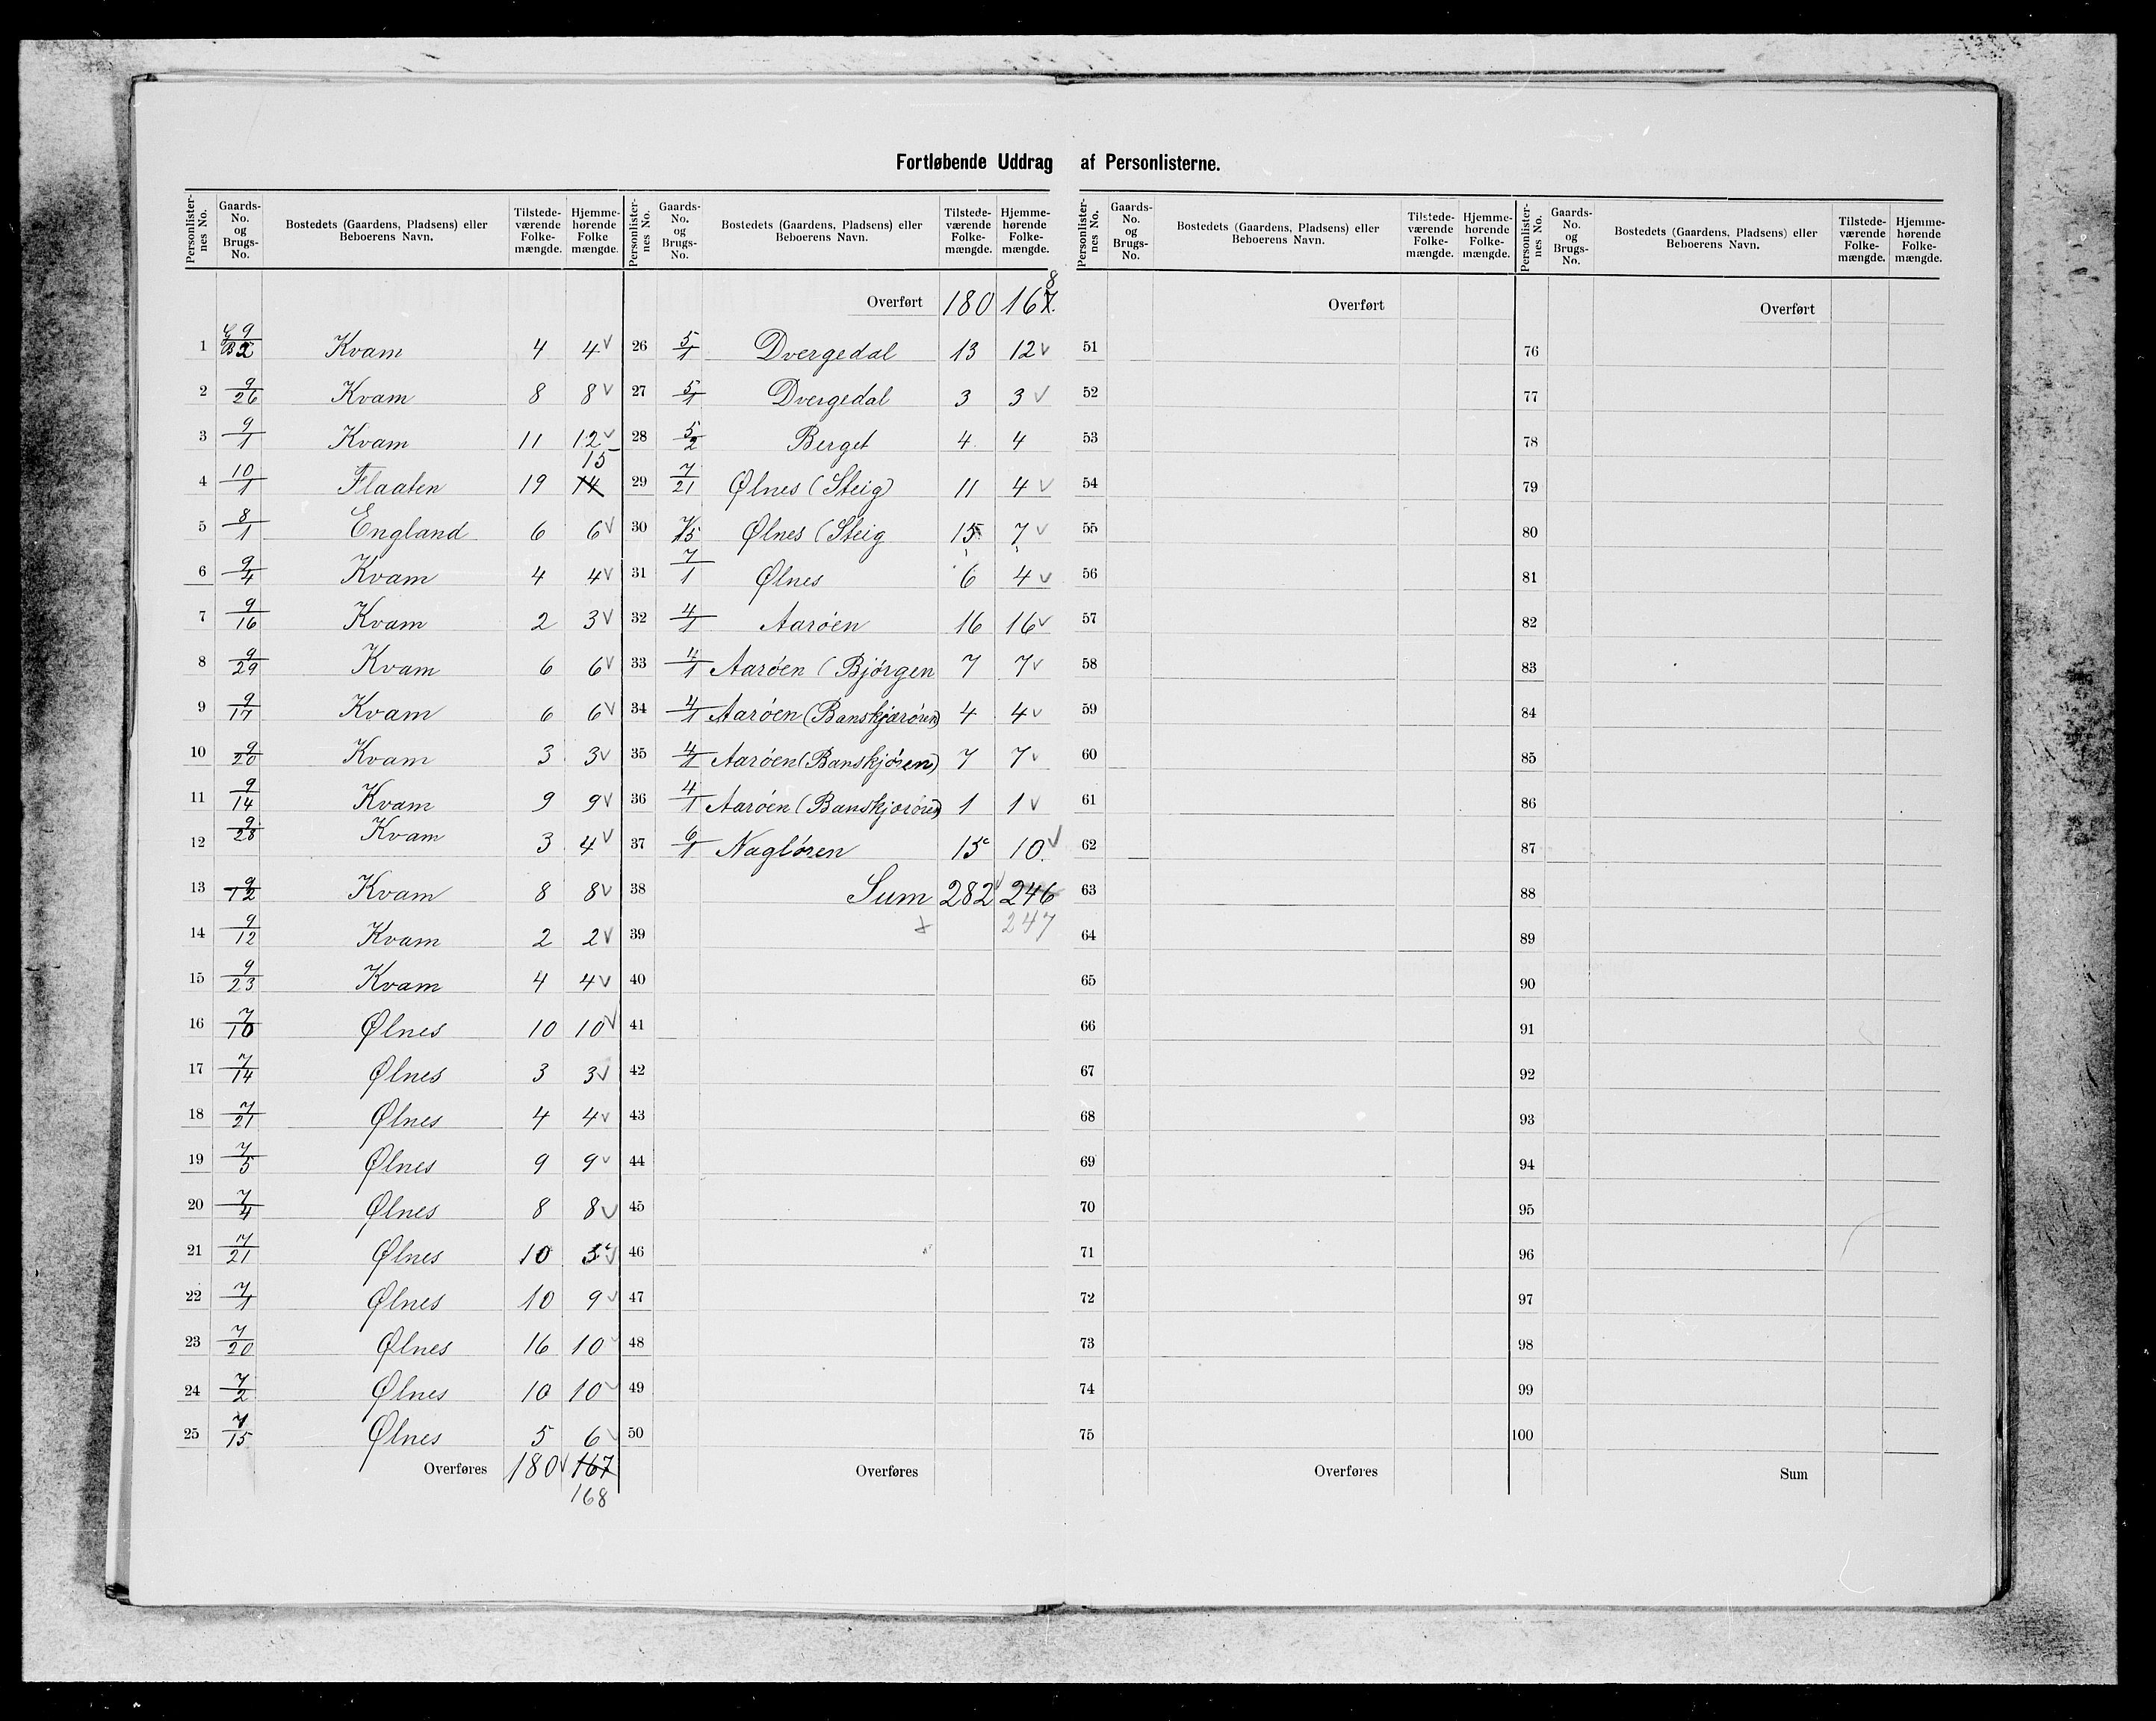 Fortløbende Uddrag af Personlisterne.
Personlister-nes No. | Gaards-No. og Brugs-No. | Bostedets (Gaardens, Pladsens) eller Beboerens Navn. | Tilstede-værende Folke-mængde. | Hjemme-hørende Folke mængde.
1 G 9/B 2 Kvam 4 4 v
2 9/26 Kvam 8 8 v
3 9/1 Kvam 11 12 v
4 10/1 Flaaten 19 14 15
5 8/1 England 6 6 v
6 9/4 Kvam 4 4 v
7 9/16 Kvam 2 3 v
8 9/29 Kvam 6 6 v
9 9/17 Kvam 6 6 v
10 9/20 Kvam 3 3 v
11 9/14 Kvam 9 9 v
12 9/28 Kvam 3 4 v
13 9/12 Kvam 8 8 v
14 9/12 Kvam 2 2 v
15 9/23 Kvam 4 4 v
16 7/10 Ølnes 10 10 v
17 7/14 Ølnes 3 3 v
18 7/21 Ølnes 4 4 v
19 7/5 Ølnes 9 9 v
20 7/4 Ølnes 8 8 v
21 7/21 Ølnes 10 3 v
22 7/1 Ølnes 10 9 v
23 7/20 Ølnes 16 10 v
24 7/2 Ølnes 10 10 v
25 7/15 Ølnes 5 6 v
Overføres 180 v 167
168
Personlister-nes No. | Gaards-No. og Brugs-No. | Bostedets (Gaardens, Pladsens) eller Beboerens Navn. | Tilstede-værende Folke-mængde. | Hjemme-hørende Folke-mængde.
Overført 180 167 8
26 5/1 Dvergedal 13 12 v
27 5/1 Dvergedal 3 3 v
28 5/2 Berget 4 4
29 7/21 Ølnes (Steig) 11 4 v
30 7/15 Ølnes (Steig 15 7 v
31 7/1 Ølnes 6 4 v
32 4/1 Aarøen 16 16 v
33 4/1 Aarøen (Bjørgen 7 7 v
34 4/1 Aarøen (Banskjærøren) 4 4 v
35 4/1 Aarøen (Banskjøren) 7 7 v
36 4/1 Aarøen (Banskjærøren) 1 1 v
37 6/1 Nagløren 15 10 v
38 Sum 282 v 246
39 247
40
41
42
43
44
45
46
47
48
49
50
Overføres
Personlister-nes No. | Gaards-No. og Brugs-No. | Bostedets (Gaardens, Pladsens) eller Beboerens Navn. | Tilstede-værende Folke-mængde. | Hjemme-hørende Folke-mængde.
Overført
51
52
53
54
55
56
57
58
59
60
61
62
63
64
65
66
67
68
69
70
71
72
73
74
75
Overføres
Personlister-nes No. | Gaards-No. og Brugs-No. | Bostedets (Gaardens, Pladsens) eller Beboerens Navn. | Tilstede-værende Folke-mængde. | Hjemme-hørende Folke-mængde.
Overført
76
77
78
79
80
81
82
83
84
85
86
87
88
89
90
91
92
93
94
95
96
97
98
99
100
Sum